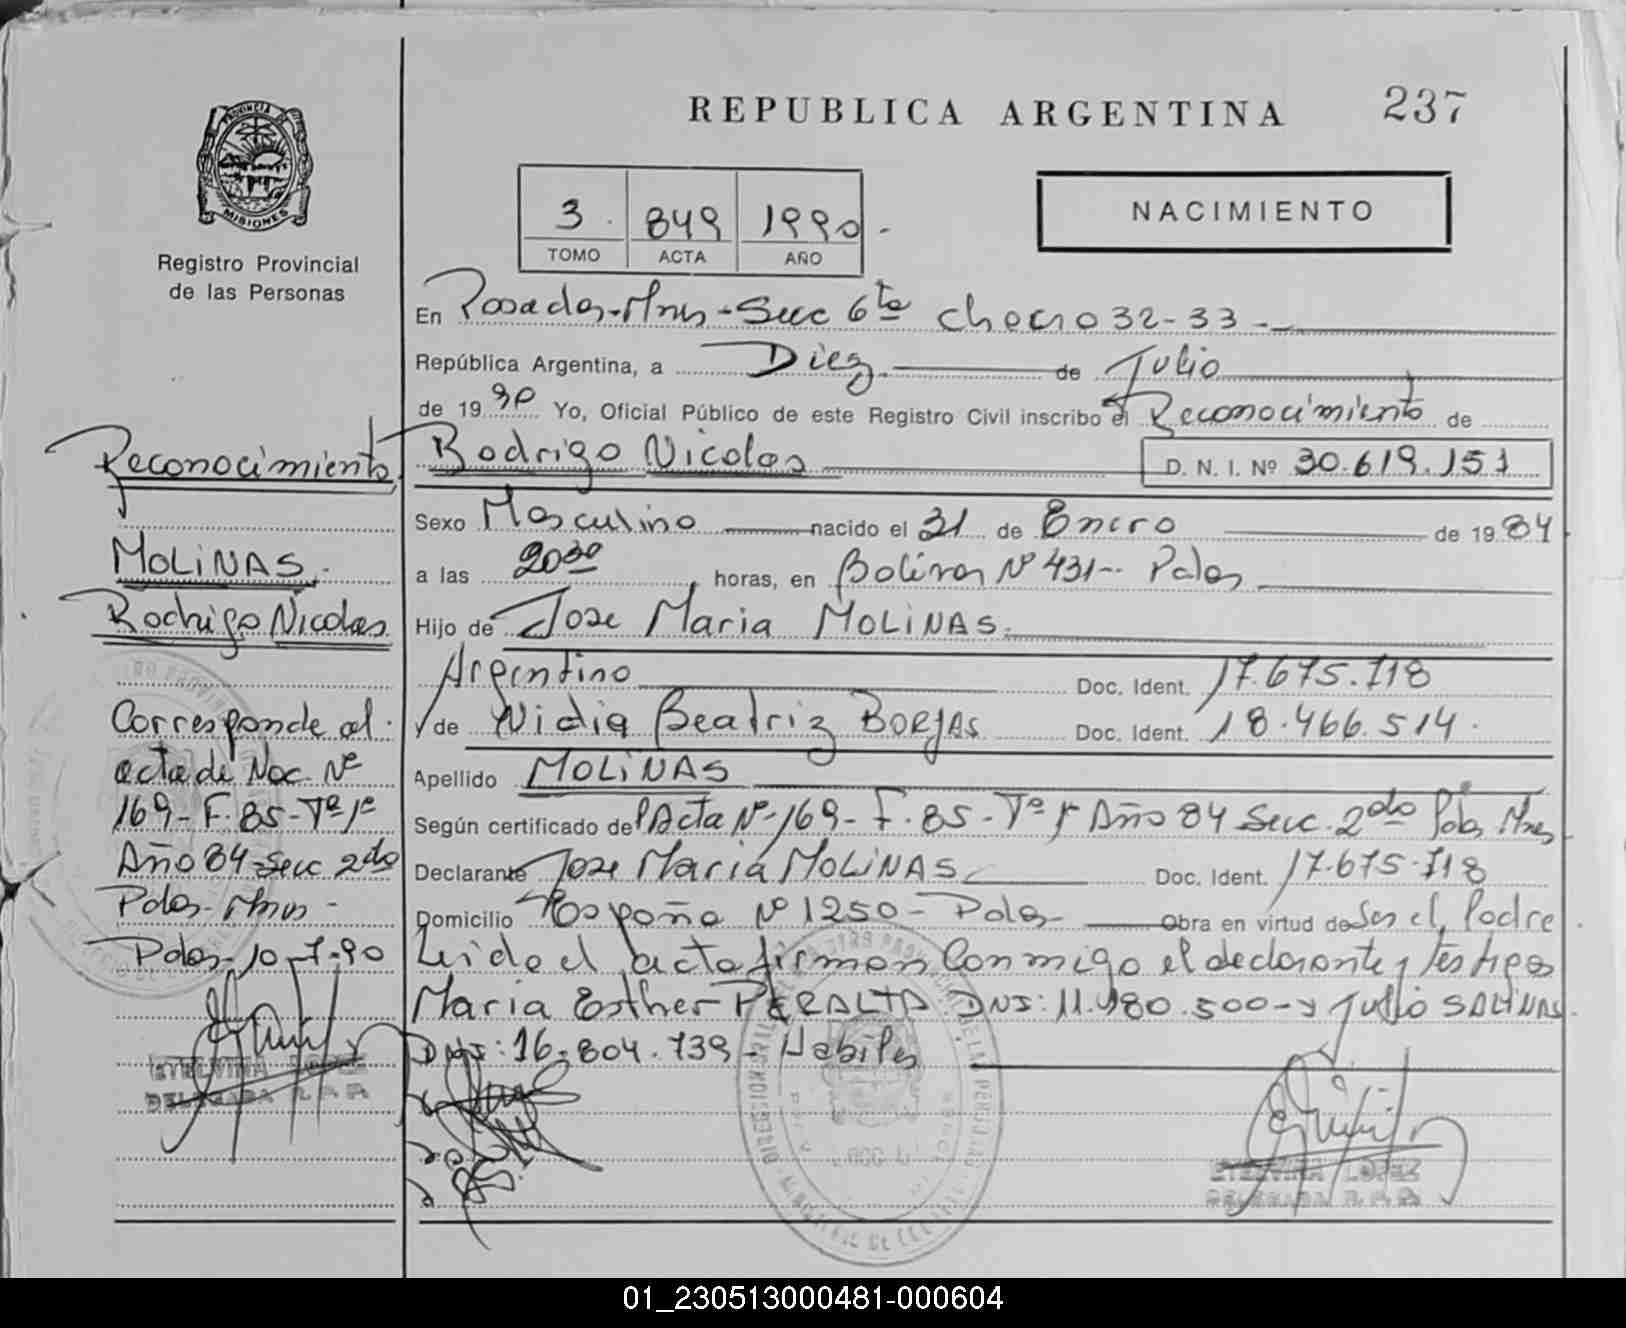 237
REPUBLICA ARGENTINA
NACIMIENTO
3 849 1990
TOMO ACTA AÑO
PROVINCIA DE MISIONES
Registro Provincial
de las Personas
Reconocimiento
MOLiNAS.
Rodrigo Nicolas
Corresponde al
acta de Nac. Nº
169- F. 85- Tº 1º
Año 84 Secc 2do
Pdas- Mnes -
Pdas- 10-7-90
ETELVINA LOPEZ
DELEGADA R. P. P.
En Posadas-Mnes-Secc 6ta chacra 32-33-
República Argentina, a Diez de Julio
de 1990 Yo, Oficial Público de este Registro Civil inscribo el Reconocimiento de
Rodrigo Nicolas D. N. I. Nº 30.619.151
Sexo Masculino nacido el 31 de Enero de 1984
a las 2030 horas, en Bolivar Nº 431-- Pdas
Hijo de Jose Maria MOLiNAS.
Argentino Doc. Ident. 17.675.718
y de Nidia Beatriz BORJAS Doc. Ident. 18.466.514.
Apellido MOLiNAS
Según certificado del Acta Nº 169- F. 85- Tº 1º Año 84 Secc. 2do Pdas Mnes
Declarante Jose Maria MOLiNAS Doc. Ident. 17.675.718
Domicilio España Nº 1250- Pdas- Obra en virtud de Ser el Padre
Leida el acta firman Conmigo el declarante y testigos
Maria Esther PERALTA DNI: 11.980.500- y Julio SALiNAS
DNI: 16.804.739- Habiles
ETELVINA LOPEZ
DELEGADA R. P. P.
01_230513000481-000604